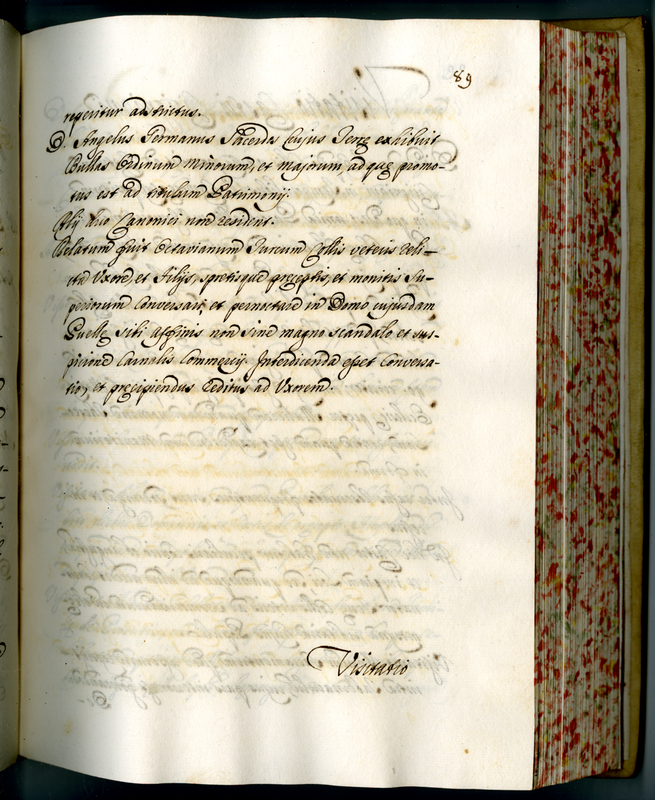 89
reperitur adstrictus.
D. Angelus Germanus Sacerdos hujus Terrę exhibuit
Bullas Ordinum minorum, et majorum, ad quę promo-
tus est ad titulum Patrimonij.
Alij duo Canonici non resident.
Relatum fuit Octavianum Collis veteris reli-
cta Uxore, et Filijs, spretisque pręceptis, et monitis Su-
periorum conversari, et pernoctare in Domo cujusdam
Puellę sibi affinis non sine magno scandalo et sus-
picione Carnalis Commercij. Interdicenda esset conversa-
tio, et pręcipiendus reditus ad Uxorem.
Visitatio